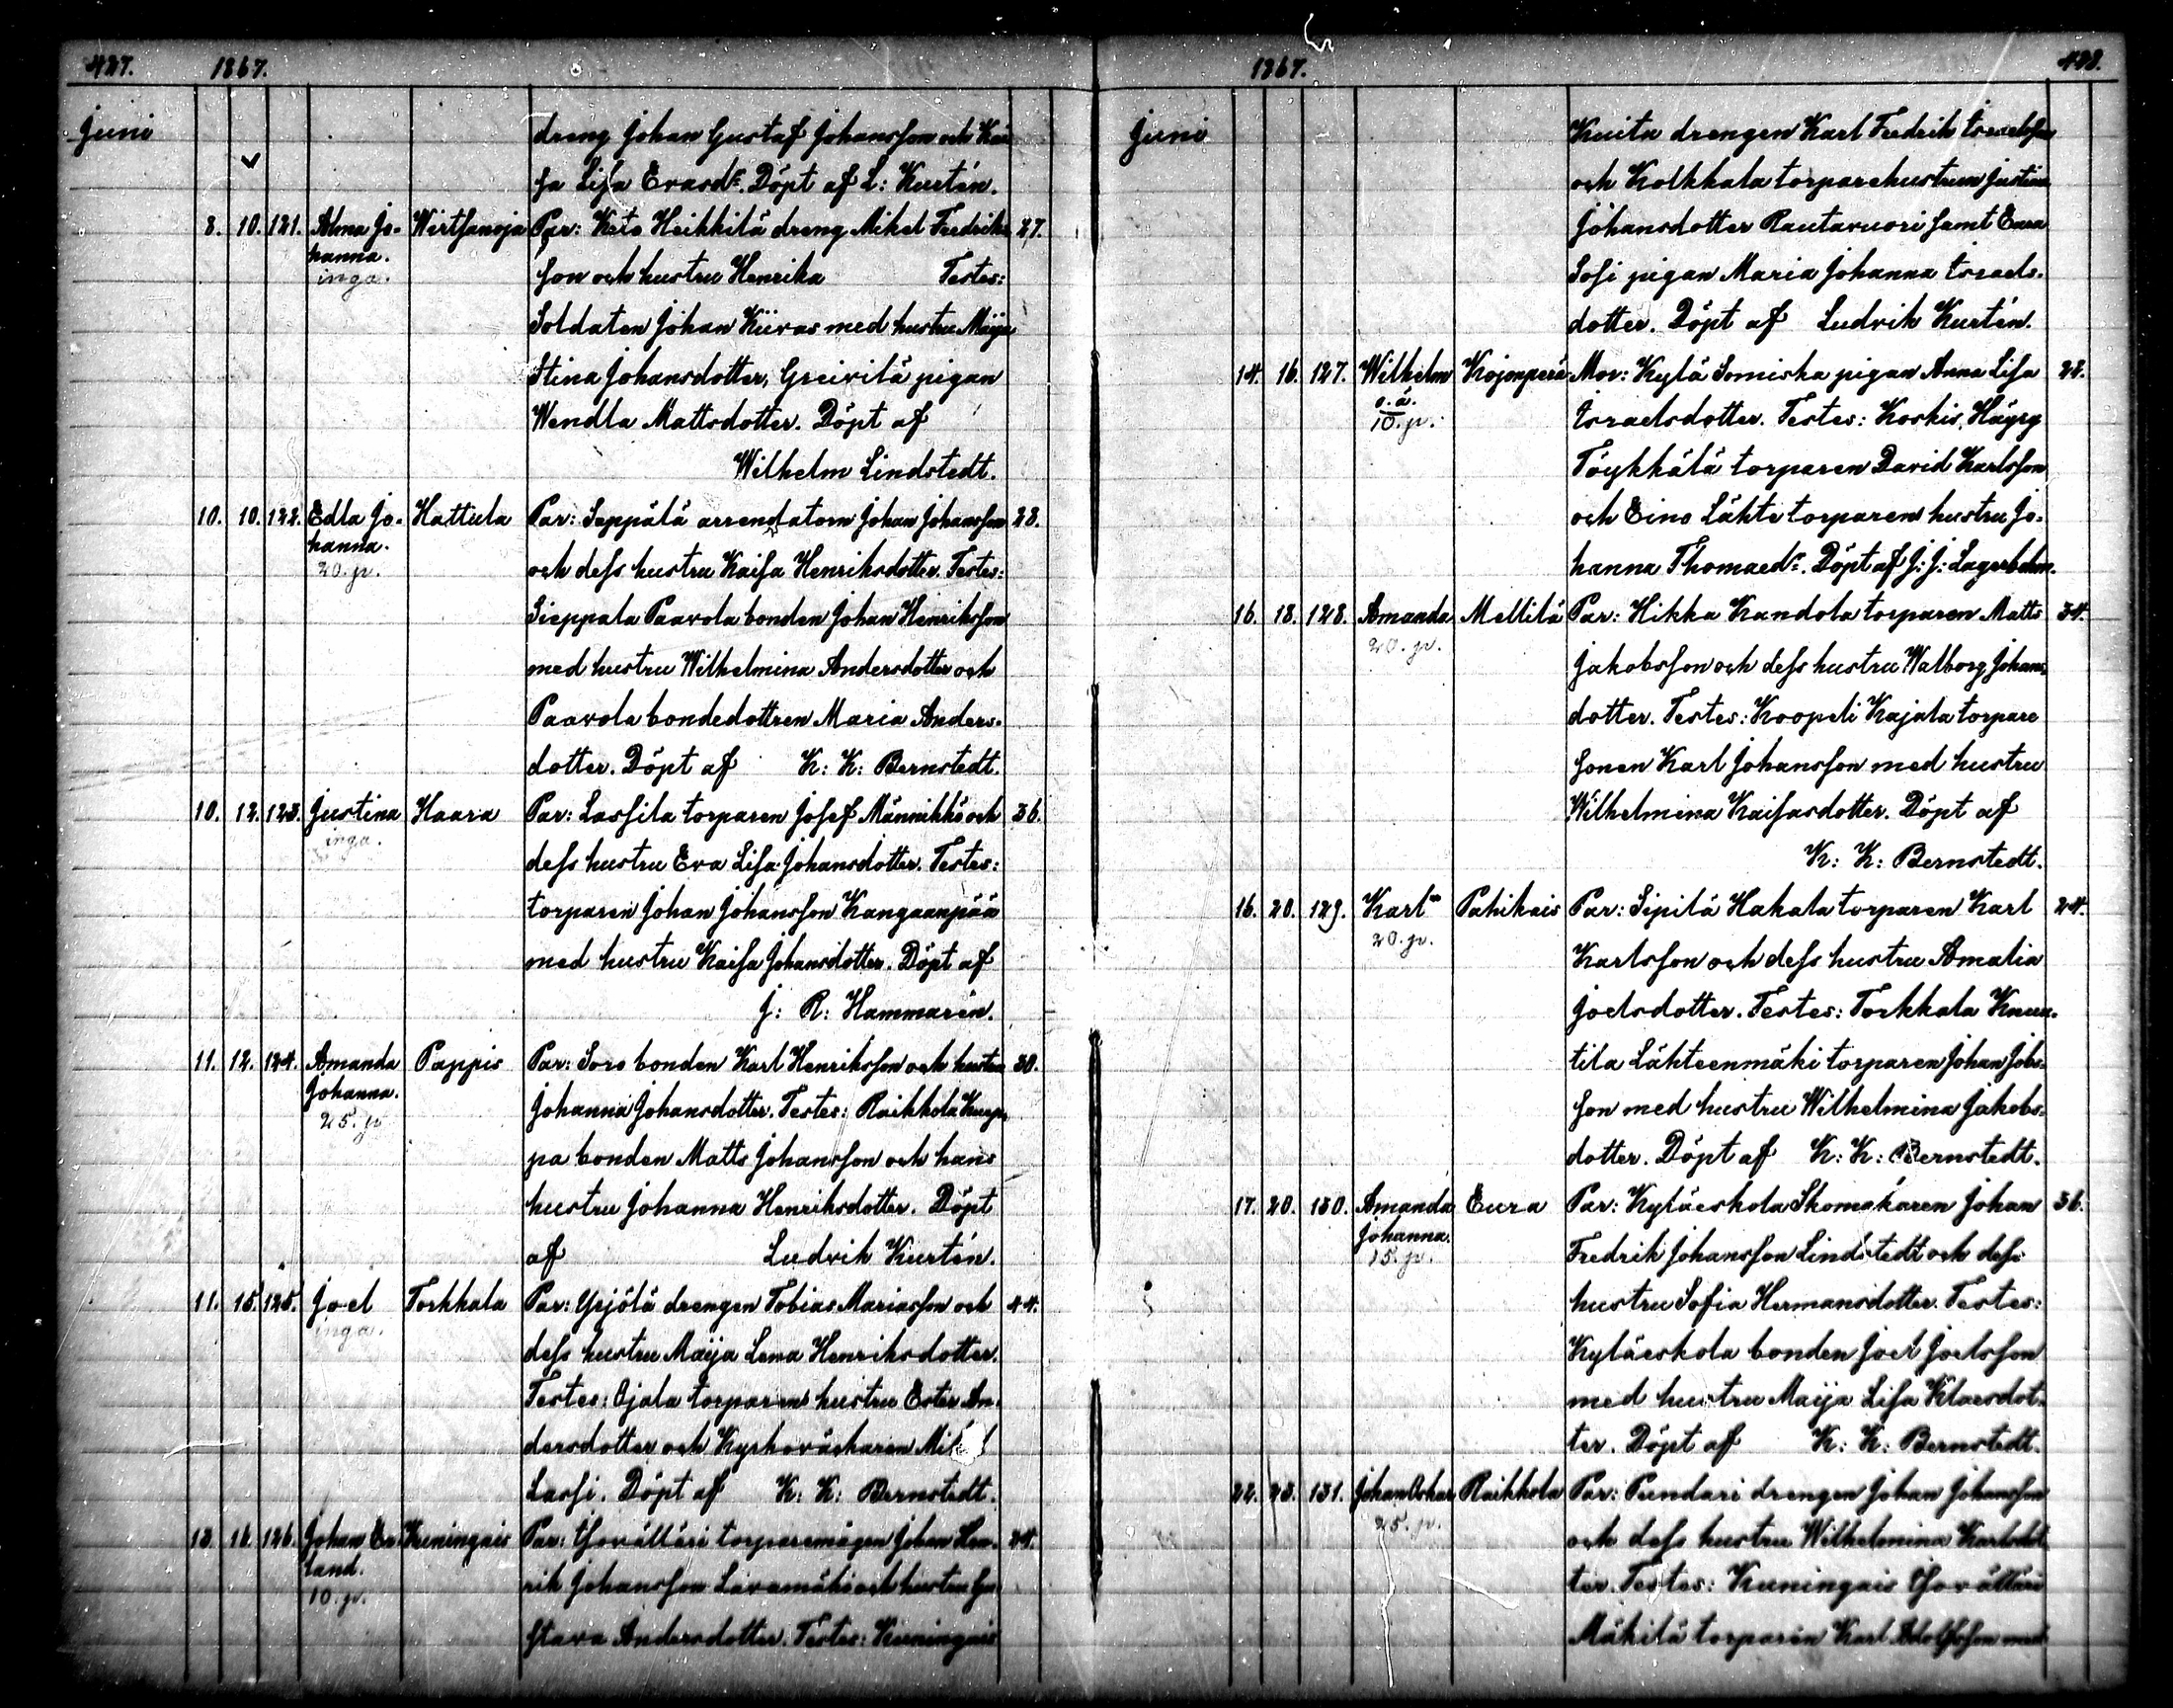 427. 1867.
Juni
dreng Johan Gustaf Johansson och Kai
sa Lisa Erasdr. Döpt af L: Kurtén.
8. 10. 121. Alma Jo- Wirtsanoja Par: Keto Heikkilä dreng Mikel Fredriks 27.
hanna. son och hustru Henrika Testes:
inga.
Soldaten Johan Kiivas med hustru Maija
Stina Johansdotter, pigan
Wendla Mattsdotter. Döpt af
Wilhelm Lindstedt.
10. 10. 122. Edla Jo- Hattula Par: Seppälä arrendatorn Johan Johansson 28.
hanna.
20. p. och dess hustru Kaisa Henriksdotter. Testes:
Sieppala Paavola bonden Johan Henriksson
med hustru Wilhelmina Andersdotter och
Paavola bondedottren Maria Anders-
dotter. Döpt af K: K: Bernstedt.
10. 12. 123. Justina Haara Par: Lassila torparen Josef Männikkö och 36.
inga.
dess hustru Eva Lisa Johansdotter. Testes:
torparen Johan Johansson Kangaanpää
med hustru Kaisa Johansdotter. Döpt af
J: R: Hammarén.
11. 12. 124. Amanda Pappis Par: Soro bonden Karl Henriksson och hustru 30.
Johanna. Johanna Johansdotter. Testes: Raikkola Kuop-
25. p
pa bonden Matts Johansson och hans
hustru Johanna Henriksdotter. Döpt
af Ludvik Kurtén.
11. 15. 125. Joel Torkkala Par: Yrjölä drengen Tobias Mariasson och 44.
inga.
dess hustru Maija Lena Henriksdotter.
Testes: Ojala torparens hustru Ester An-
dersdotter och Kyrkoväktaren
Lassi. Döpt af K: K: Bernstedt.
13. 16. 126. Johan Er- Kuningais Par: Isovälläri torparemågen Johan Hen- 24.
land.
10. p. rik Johansson Laramäki och hustru Gu
stava Andersdotter. Testes: Kuningais
1867. 428.
Juni
Knuita drengen Karl Fredrik Israelsson
och Kolkkala torparehustrun Justina
Johansdotter Rautavuori samt Eura
Sofi pigan Maria Johanna Israels-
dotter. Döpt af Ludvik Kurtén.
14. 16. 127. Wilhelm Kojonperä Mor: Kylä Somiska pigan Anna Lisa 22.
o. ä.
10. p. Israelsdotter. Testes: Koskis, Häyry
Töykkälä torparen David Karlsson
och Eino Lähte torparens hustru Jo-
hanna Thomaedr. Döpt af J: J: Lagerbohm.
16. 18. 128. Amanda Mellilä Par: Hikka Kandola torparen Matts 34.
20. p.
Jakobsson och dess hustru Walborg Johans
dotter. Testes: Koopeli Kajala torpare
sonen Karl Johansson med hustru
Wilhelmina Kaisasdotter. Döpt af
K: K: Bernstedt.
16. 20. 129. Karl Pahikais Par: Sipilä Hakala torparen Karl 24.
20. p.
Karlsson och dess hustru Amalia
Joelsdotter. Testes: Torkkala Knuu-
tila Lähteenmäki torparen Johan Jobs-
son med hustru Wilhelmina Jakobs-
dotter. Döpt af K: K: Bernstedt.
17. 20. 130. Amanda Eura Par: Kyläeskola Skomakaren Johan 36.
Johanna.
15. p. Fredrik Johansson Lindstedt och dess
hustru Sofia Hermansdotter. Testes:
Kyläeskola bonden Joel Joelsson
med hustru Maija Lisa Klaesdot-
ter. Döpt af K: K: Bernstedt.
22. 23. 131. Johan Oskar Raikkola Par: Pundari drengen Johan Johansson
25. p.
och dess hustru Wilhelmina Karlsdot
ter. Testes: Kuningais Isovälläri
Mäkilä torparen Karl Adolfsson med